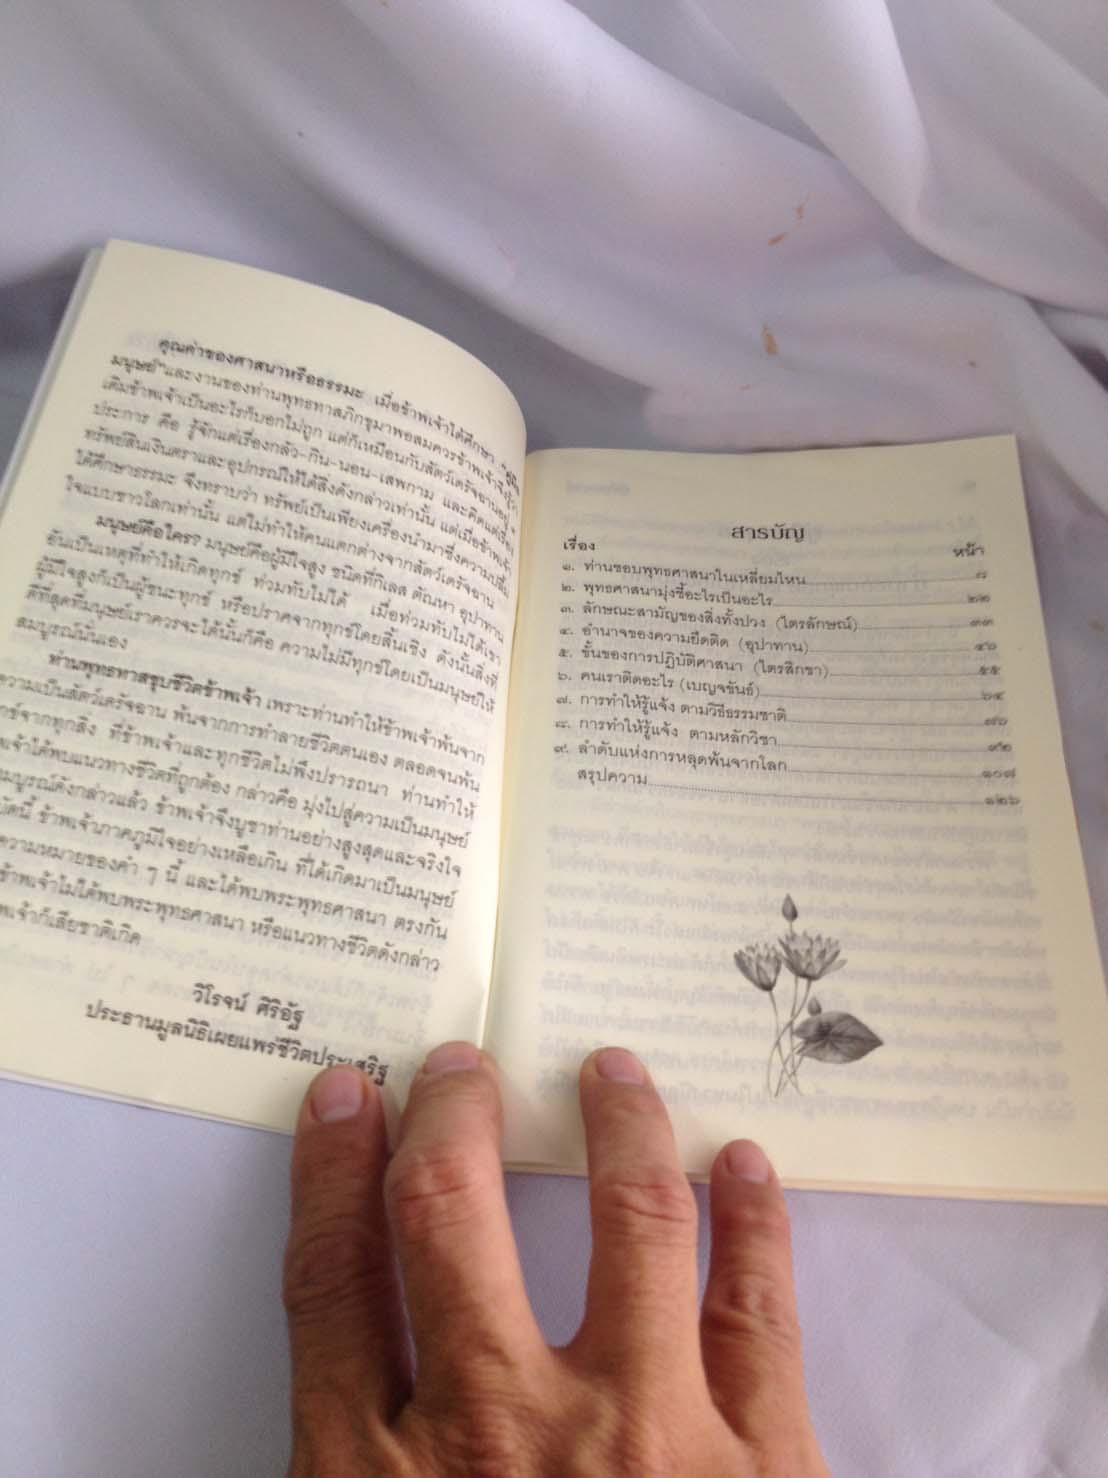 คุณค่าของศาสนาหรือธรรมะ เมื่อข้าพเจ้าได้ศึกษา "คู่มือ
มนุษย์"และงานของท่านพุทธทาสภิกขุมาพอสมควรข้าพเจ้าจึงรู้ว่า
เดิมข้าพเจ้าเป็นอะไรก็บอกไม่ถูก แต่ก็เหมือนกับสัตว์เดรัจฉานอยู่ ๔
ประการ คือ รู้จักแต่เรื่องกลัว-กิน-นอน-เสพกาม และคิดแต่เรื่อง
ทรัพย์สินเงินตราและอุปกรณ์ให้ได้สิ่งดังกล่าวเท่านั้น แต่เมื่อข้าพเจ้า
ได้ศึกษาธรรมะ จึงทราบว่า ทรัพย์เป็นเพียงเครื่องนำมาซึ่งความปลื้ม
ใจแบบชาวโลกเท่านั้น แต่ไม่ทำให้คนแตกต่างจากสัตว์เดรัจฉาน
มนุษย์คือใคร? มนุษย์คือผู้มีใจสูง ชนิดที่กิเลส ตัณหา อุปาทาน
อันเป็นเหตุที่ทำให้เกิดทุกข์ ท่วมทับไม่ได้ เมื่อท่วมทับไม่ได้เขา
ผู้มีใจสูงก็เป็นผู้ชนะทุกข์ หรือปราศจากทุกข์โดยสิ้นเชิง ดังนั้นสิ่งที่
ดีที่สุดที่มนุษย์เราควรจะได้นั้นก็คือ ความไม่มีทุกข์โดยเป็นมนุษย์ให้
สมบูรณ์นั่นเอง
ท่านพุทธทาสชุบชีวิตข้าพเจ้า เพราะท่านทำให้ข้าพเจ้าพ้นจาก
ความเป็นสัตว์เดรัจฉาน พ้นจากการทำลายชีวิตตนเอง ตลอดจนพ้น
ทุกข์จากทุกสิ่ง ที่ข้าพเจ้าและทุกชีวิตไม่พึงปรารถนา ท่านทำให้
ได้พบแนวทางชีวิตที่ถูกต้อง กล่าวคือ มุ่งไปสู่ความเป็นมนุษย์
ดังกล่าวแล้ว ข้าพเจ้าจึงบูชาท่านอย่างสูงสุดและจริงใจ
บัดนี้ ข้าพเจ้าภาคภูมิใจอย่างเหลือเกิน ที่ได้เกิดมาเป็นมนุษย์
ความหมายของคำ ๆ นี้ และได้พบพระพุทธศาสนา ตรงกัน
ข้าพเจ้าไม่ได้พบพระพุทธศาสนา หรือแนวทางชีวิตดังกล่าว
ก็เสียชาติเกิด
วิโรจน์ ศิริอัฐ
ประธานมูลนิธิเผยแพร่ชีวิตประเสริฐ
สารบัญ
เรื่อง หน้า
๑. ท่านชอบพุทธศาสนาในเหลี่ยมไหน ๗
๒. พุทธศาสนามุ่งชี้อะไรเป็นอะไร ๒๒
๓. ลักษณะสามัญของสิ่งทั้งปวง (ไตรลักษณ์) ๓๓
๔. อำนาจของความยึดติด (อุปาทาน) ๔๖
๕. ขั้นของการปฏิบัติศาสนา (ไตรสิกขา) ๕๕
๖. คนเราติดอะไร (เบญจขันธ์) ๖๔
๗. การทำให้รู้แจ้ง ตามวิธีธรรมชาติ ๗๖
๘. การทำให้รู้แจ้ง ตามหลักวิชา ๙๒
๙. ลำดับแห่งการหลุดพ้นจากโลก ๑๐๗
สรุปความ ๑๒๖